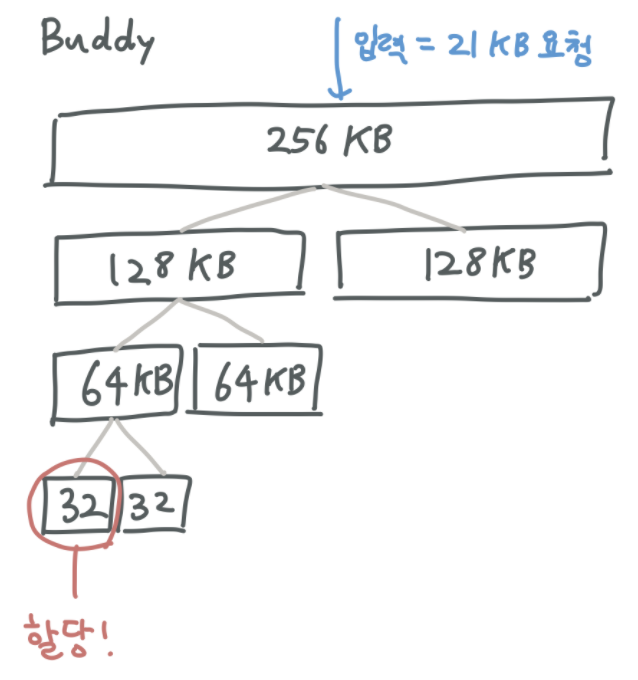 Buddy
입력 = 21 KB 요청
256 KB
128 KB
128KB
64KB
64KB
32
32
할당!